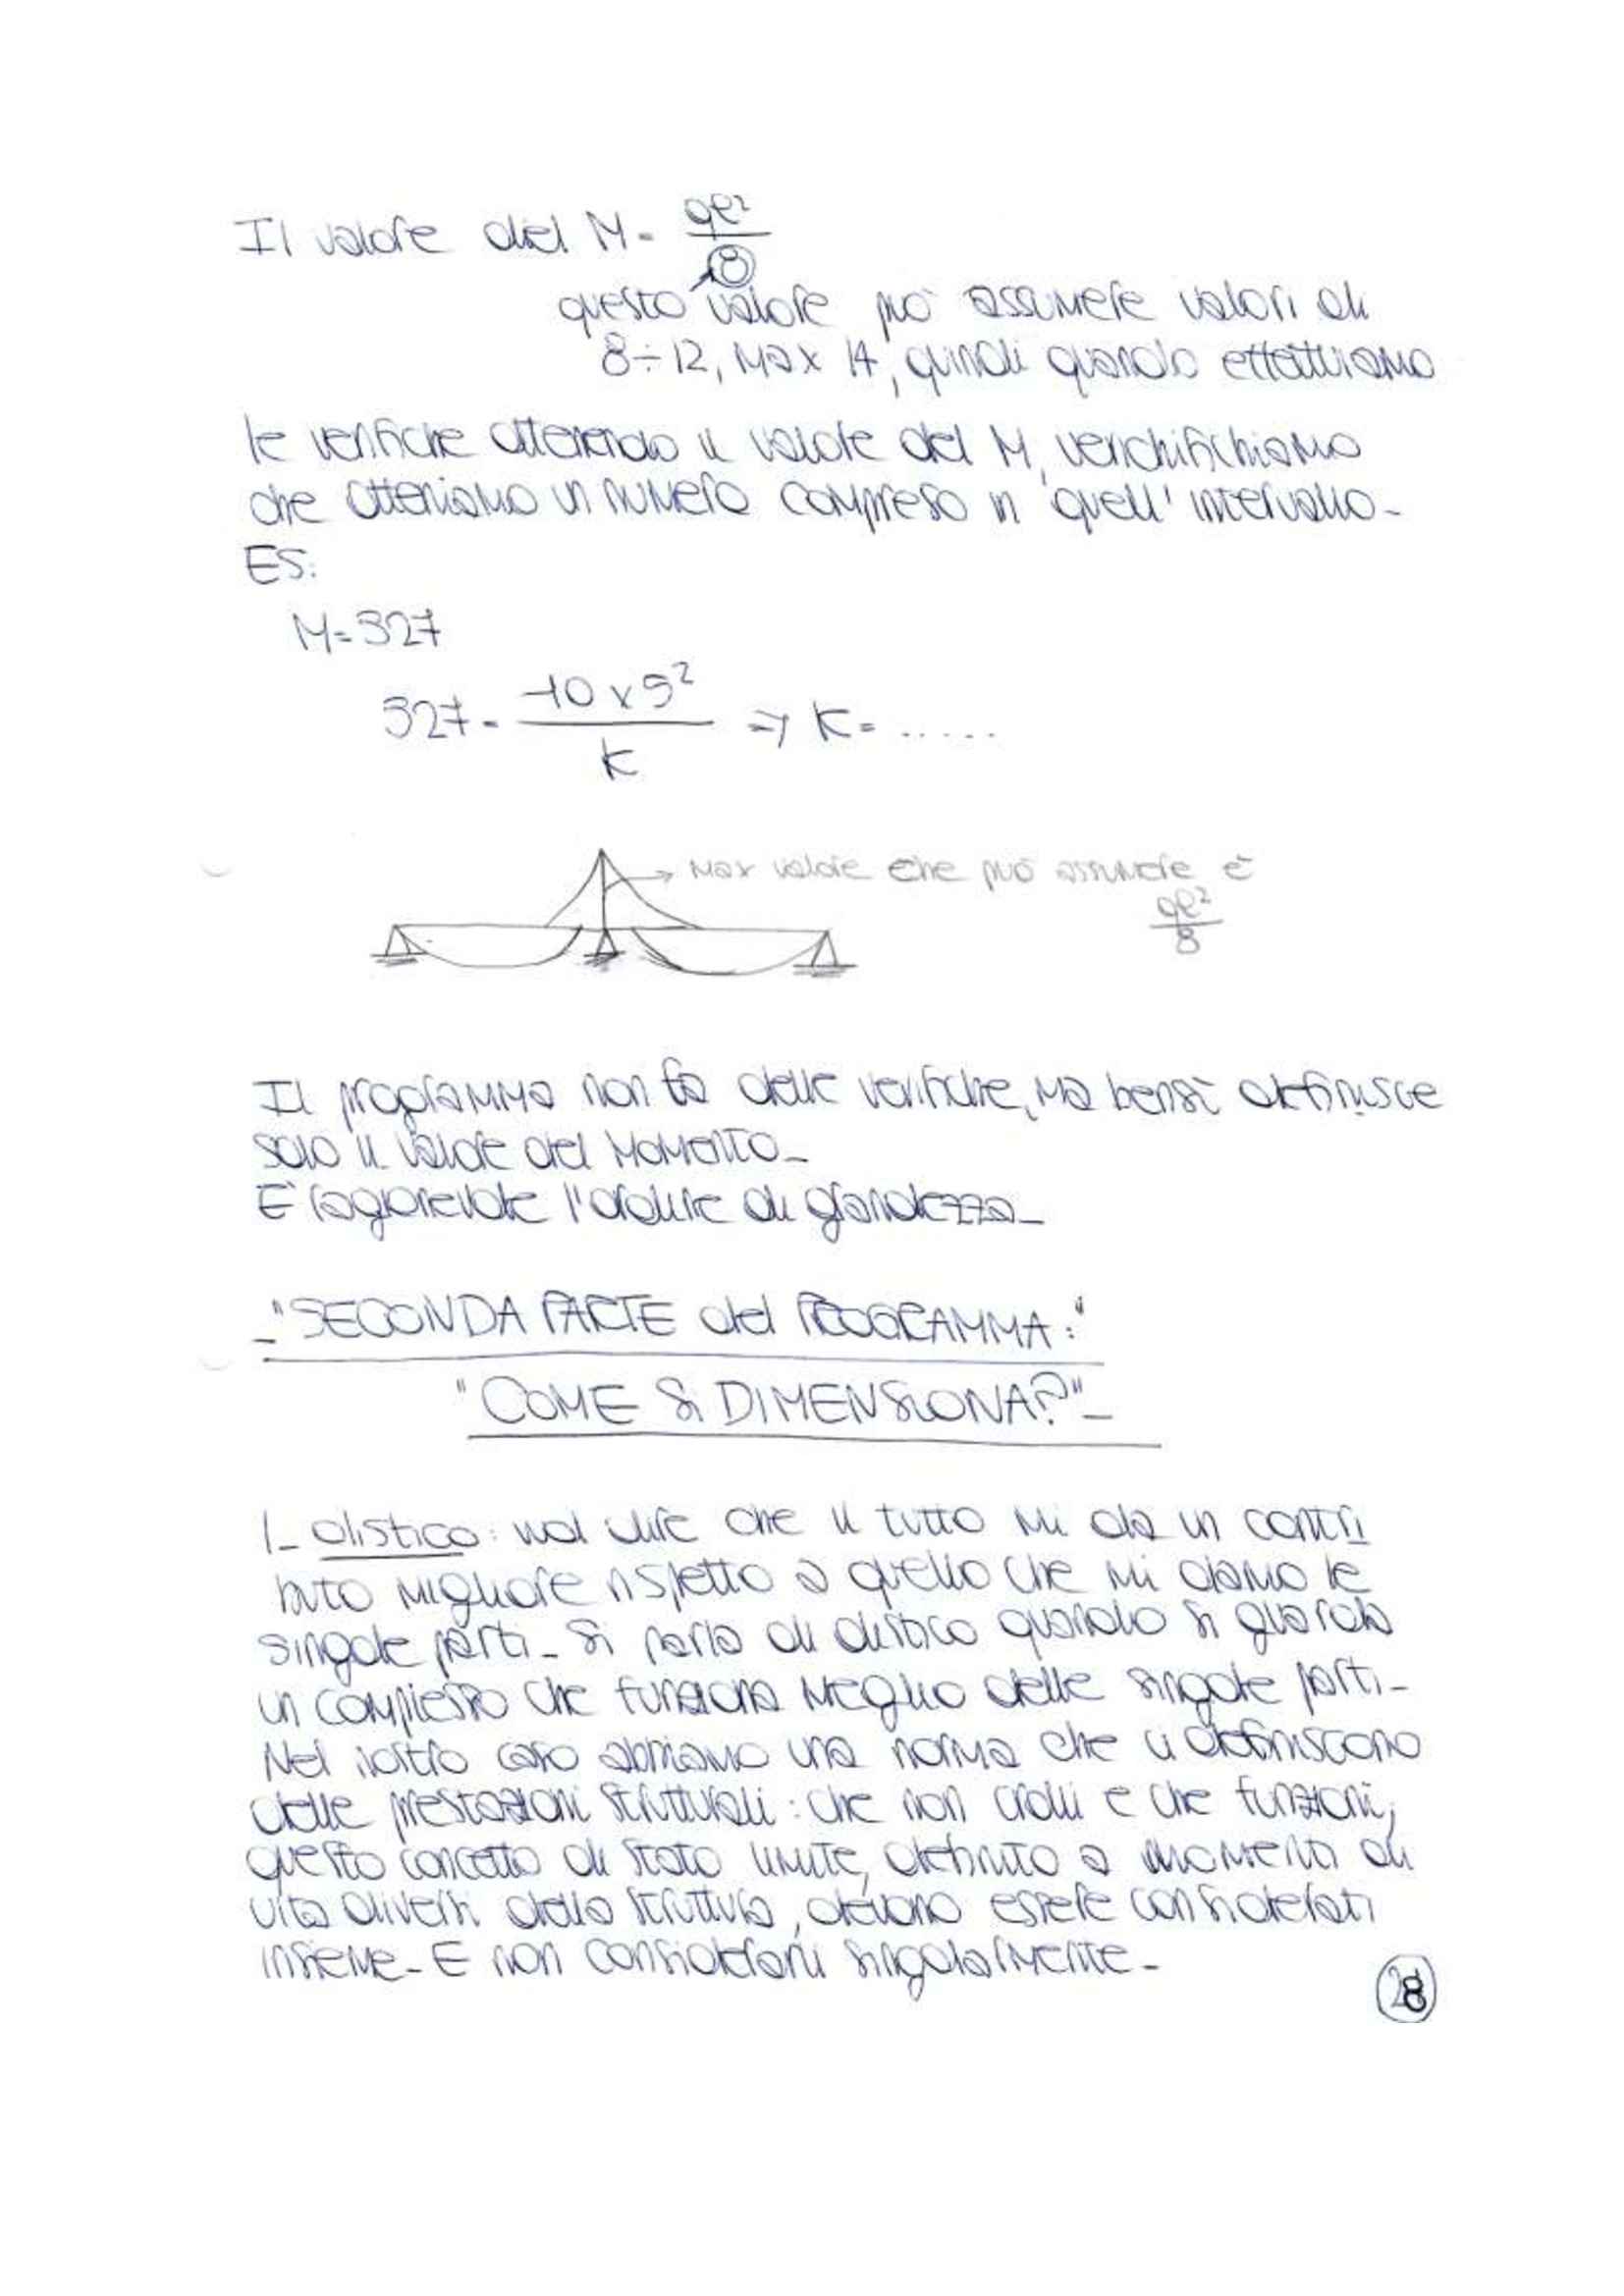 Il valore del M = ql²
8
questo valore può assumere valori di
8÷12, max 14, quindi quando effettuiamo
le verifiche ottenendo il valore del M, verichifichiamo
che otteniamo un numero compreso in quell' intervallo-
ES:
M=327
327 = 10 x 5²
K
⇒ K= .....
→ Max valore che può assumere è
ql²
8
Il programma non fa delle verifiche, ma bensì definisce
solo il valore del momento-
E' ragionevole l'ordine di grandezza-
-"SECONDA PARTE del PROGRAMMA:"
"COME Si DIMENSIONA?"-
1- olistico: vuol dire che il tutto mi da un contri
buto migliore rispetto a quello che mi danno le
singole parti- Si parla di olistico quando si guarda
un complesso che funziona meglio delle singole parti-
Nel nostro caso abbiamo una norma che ci definiscono
delle prestazioni strutturali: che non crolli e che funzioni;
questo concetto di stato limite, definito a momenti di
vita diversi della struttura, devono essere considerati
insieme- E non considerarli singolarmente-
28